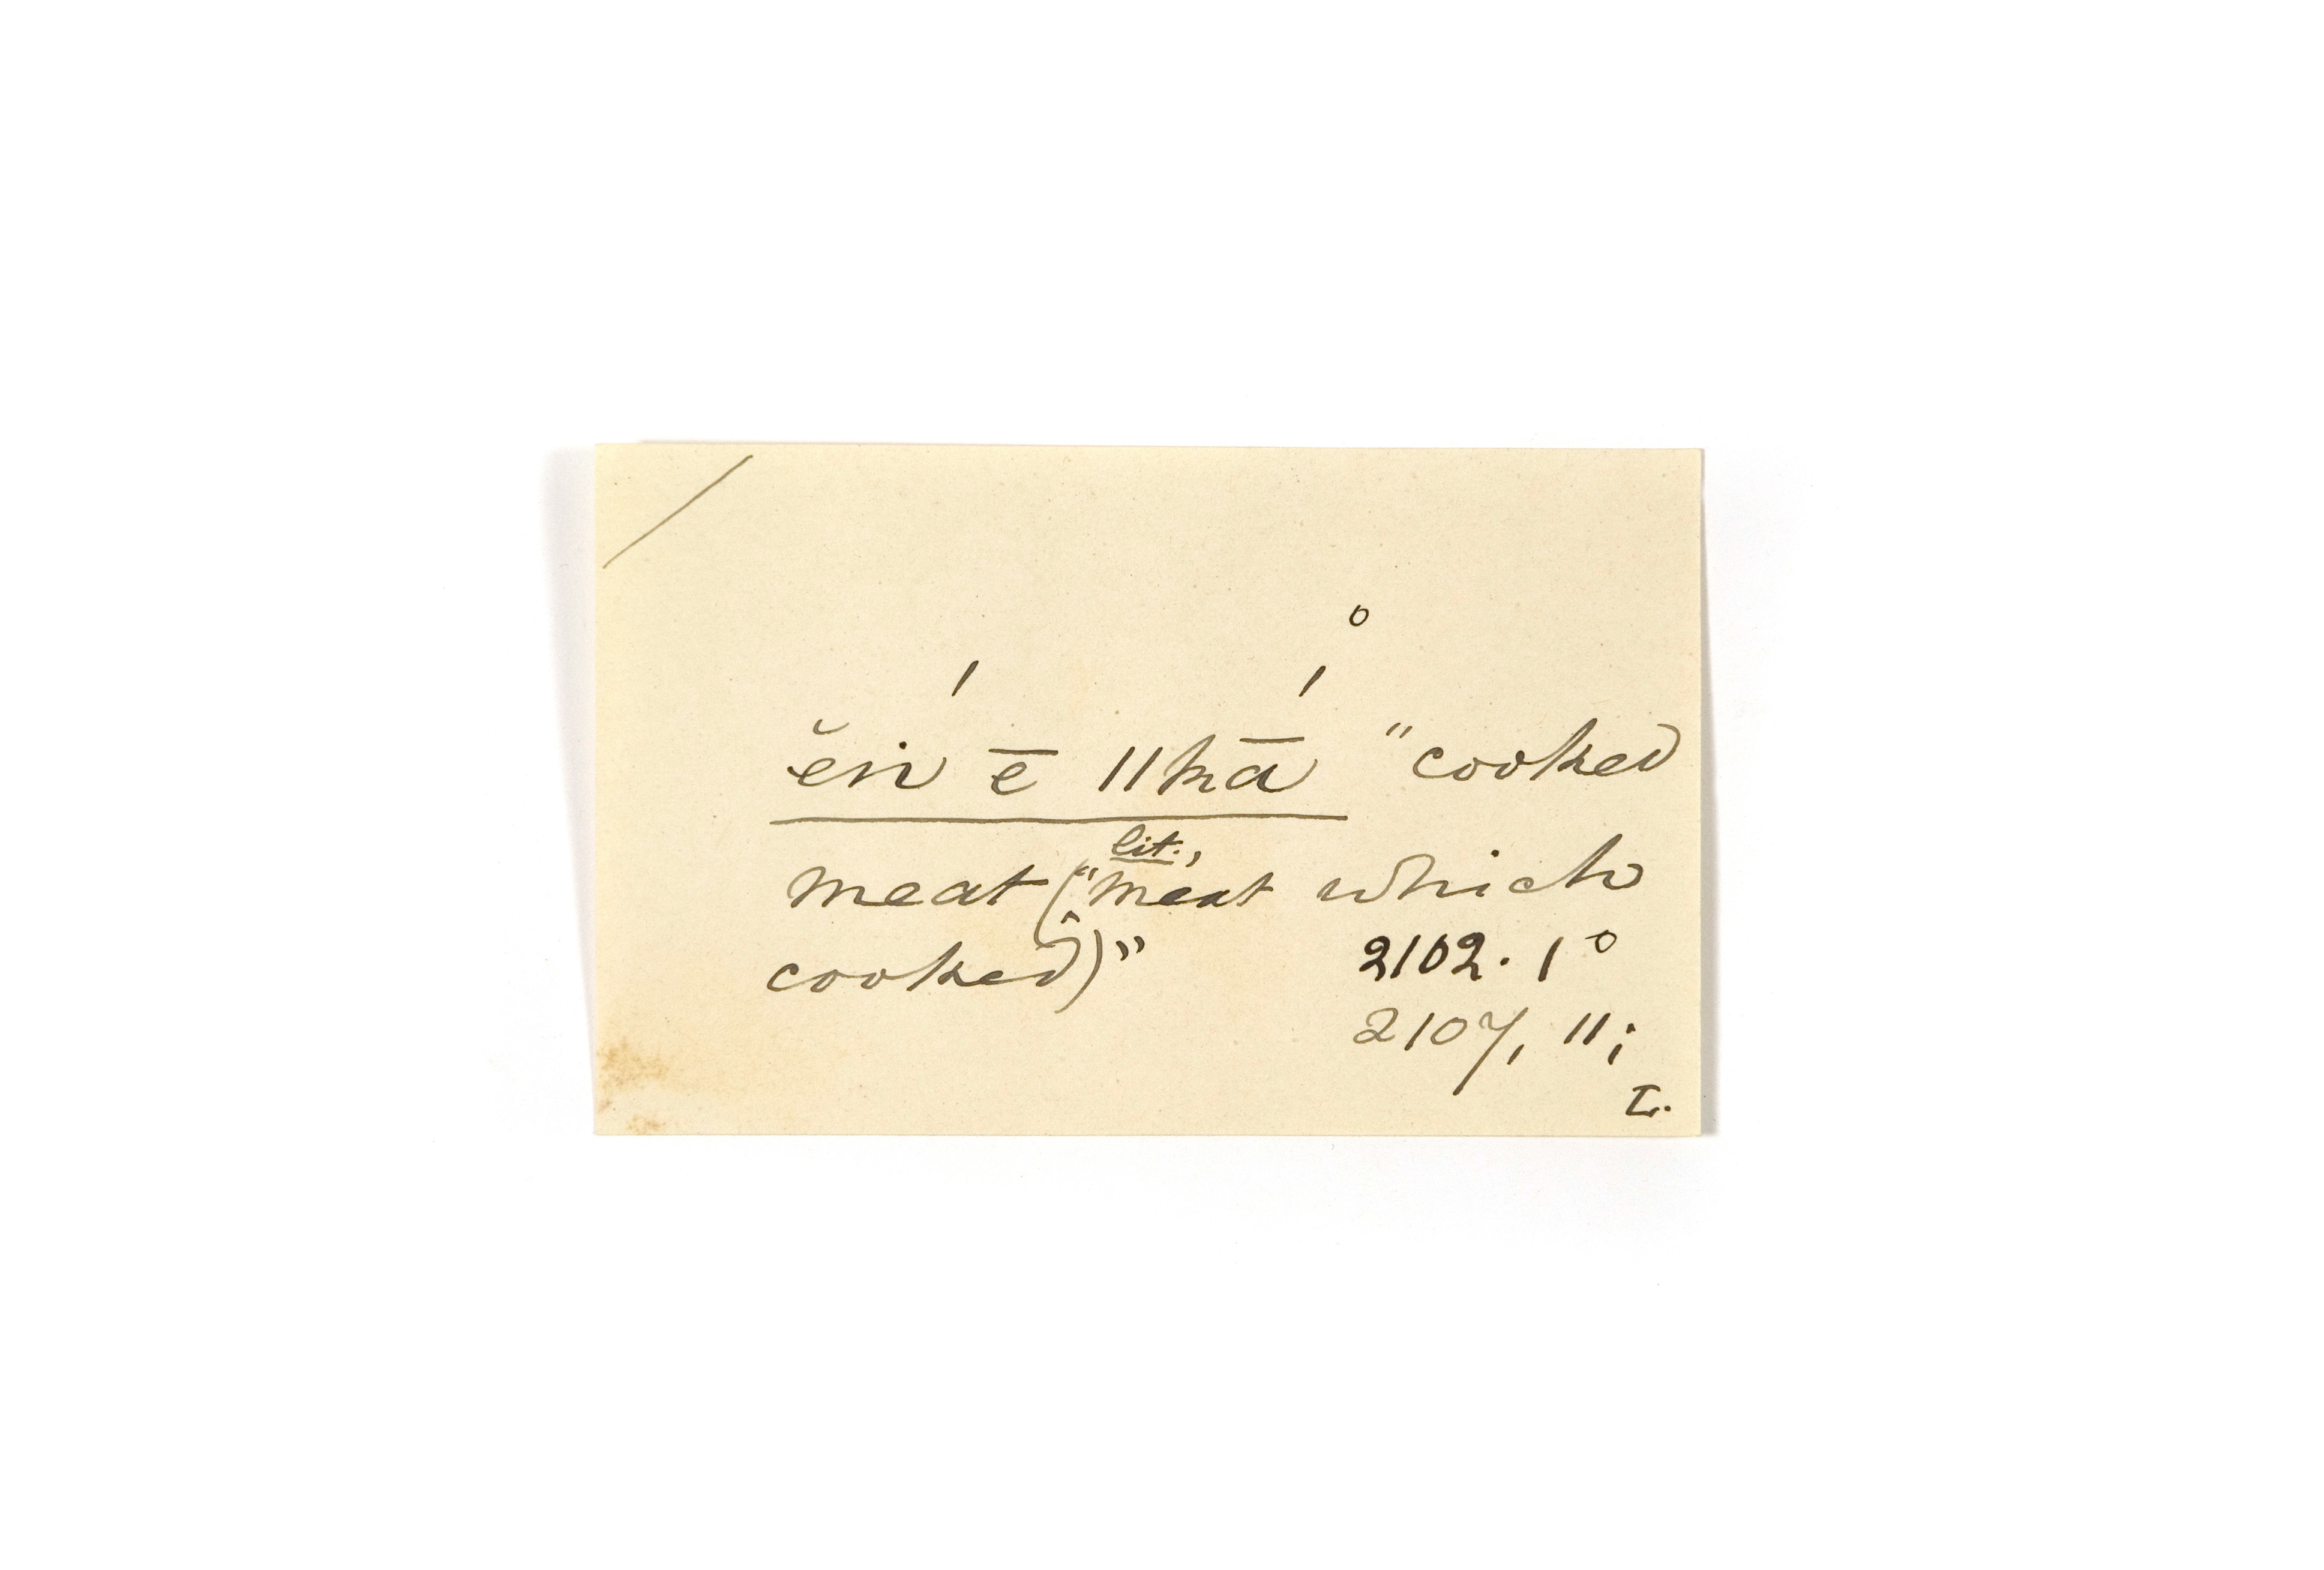 ĕń ē ǁkā́° "cooked
meat (lit., "meat which
cooked)"
2102. 1°
2107, 11;
L.